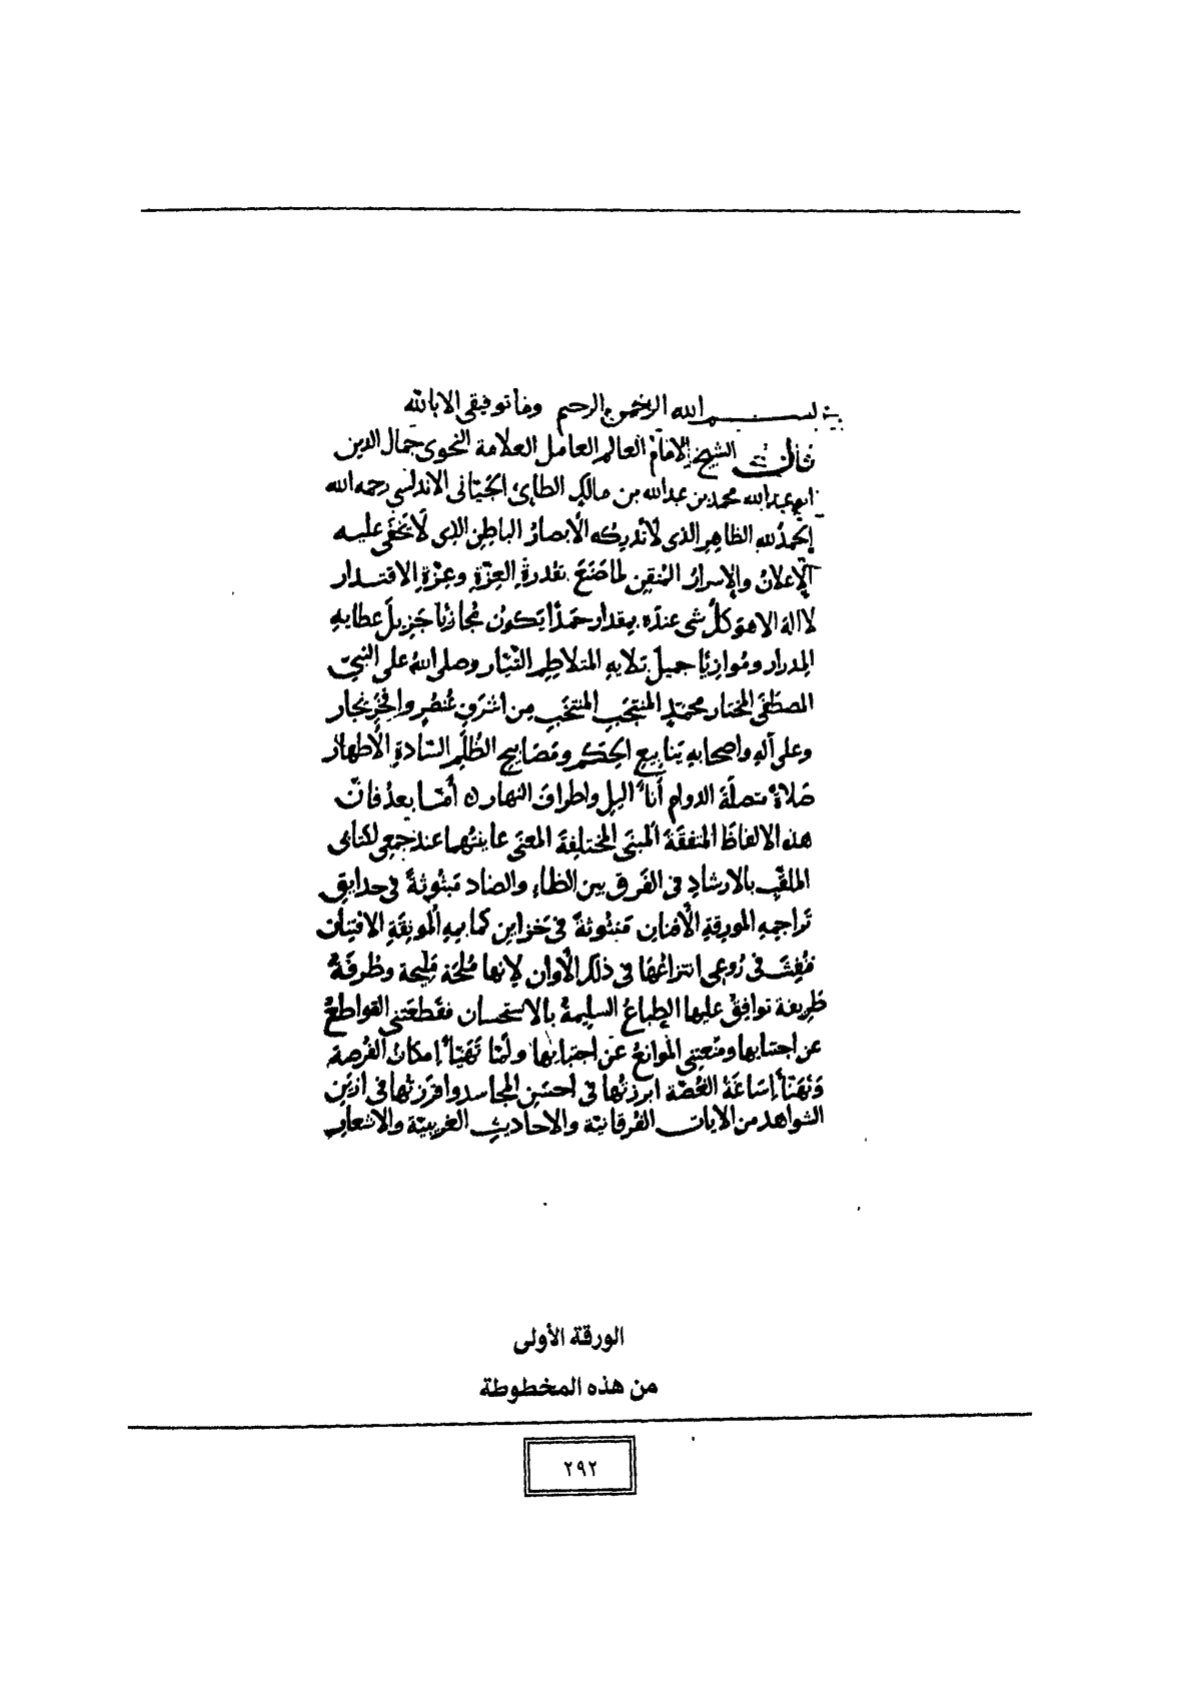 بسم الله الرحمن الرحيم وما توفيقي الا بالله
قال الشيخ الإمام العالم العامل العلامة النحوى جمال الدين
ابو عبد الله محمد بن عبد الله بن مالك الطاءى الجيانى الاندلسى رحمه الله
الحمد لله الظاهر الذى لا تدركه الأبصار الباطن الذى لا يخفى عليه
الإعلان والإسرار المتقن لما صنع بقدرة العزة وعزة الاقتدار
لا اله الا هو كل شى عنده بمقدار حمدًا يكون مجازيًا جزيل عطايه
المدرار وموازيًا جميل بلايه المتلاطم التيار وصلى الله على النبي
المصطفى المختار محمدٍ المنتجب المنتخب من اشرف عنصر وافخر نجار
وعلى آله واصحابه ينابيع الحكم ومصابيح الظلم السّادة الأطهار
صلاةً متصلة الدوام آناء اليل واطراف النهار أمّا بعد فان
هذه الالفاظ المتفقة المبنى المختلفة المعنى عاينتها عند جمعى لكتابى
الملقب بالارشاد فى الفرق بين الظاء والضاد مبثوثةً فى حدايق
تراجمه المورقة الأفنان مبثوثةً فى خزاين كمايمه المونقة الافتنان
فنُفِثَ فى رُوعى انتزاعُها فى ذلك الأوان لانها مُلحَة مليحة وظُرفَة
ظريفة توافق عليها الطباعُ السليمةُ بالاستحسان فقطعَتنى القواطعُ
عن اجتنابها ومنعتنى الموانعُ عن اجتبايها ولمّا تهيّأ إمكان الفُرصة
وتهنّأ إساغة الغُصّة ابرزتُها فى احسن المجاسد وافرزتُها فى ازين
الشواهد من الايات الفُرقانيّة والاحاديث الغريبيّة والاشعار
الورقة الأولى
من هذه المخطوطة
٢٩٢